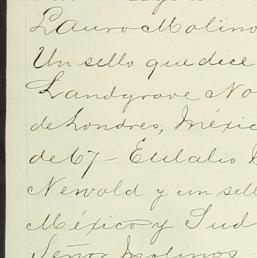 Lauro Molino
Un sello que dice
Landgrave No
de Londres, Méxic
de 67 - Eulalio
Newald y un sell
México y Sud
Señor Molinos